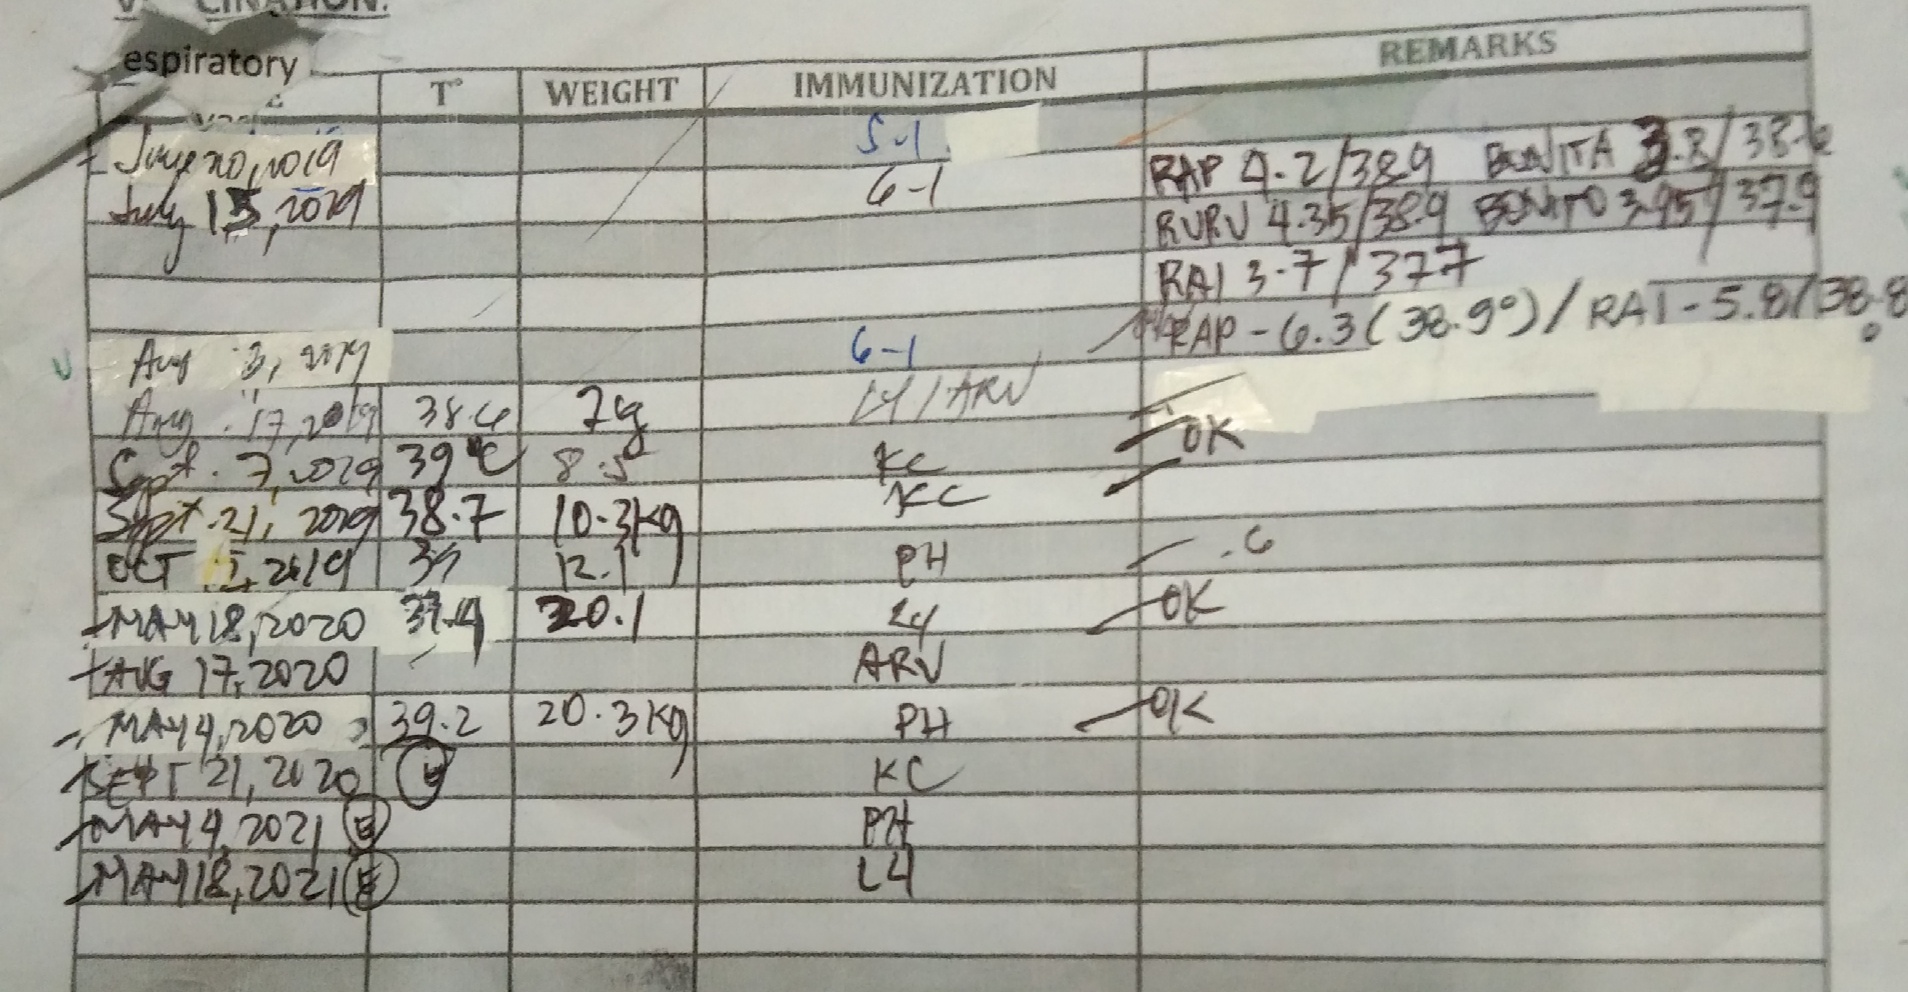 CINATION:
espiratory
T° WEIGHT IMMUNIZATION REMARKS
June 20, 2019 5-1 RAP 4.2/38.9 BONITA 3.8/38.6
July 15, 2019 6-1 RURU 4.35/38.9 BONITO 3.95/37.9
RAI 3.7/37.7
RAP - 6.3 (38.9°) / RAI - 5.8/38.8
Aug 3, 2019 6-1
Aug. 17, 2019 38.6 7kg L4/ARV
Sept. 7, 2019 39°C 8.5 KC OK
Sept. 21, 2019 38.7 10.3kg KC
OCT 2019 39 12.1 PH
MAY 18, 2020 37.9 20.1 L4 OK
AUG 17, 2020 ARV
MAY 4, 2020 39.2 20.3kg PH OK
SEPT 21, 2020 KC
MAY 4, 2021 PH
MAY 18, 2021 L4